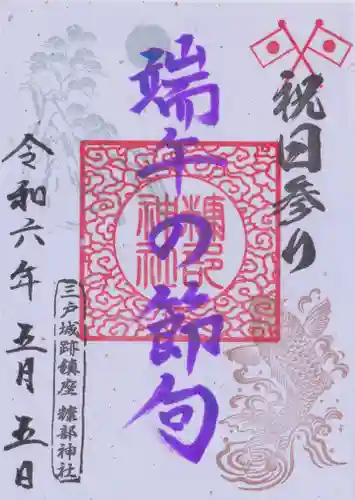 祝日参り
端午の節句
糠部
神社
令和六年五月五日
三戸城跡鎮座 糠部神社